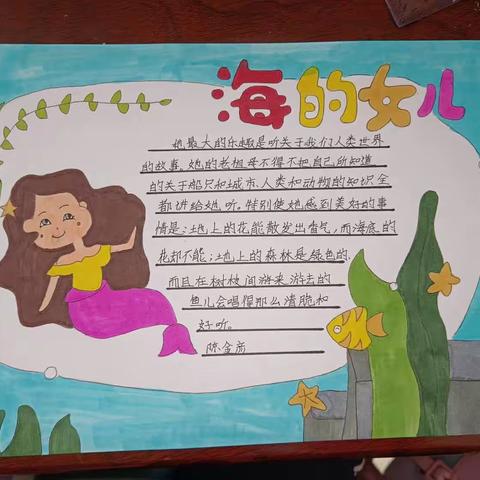 海的女儿
她最大的乐趣是听关于我们人类世界
的故事。她的老祖母不得不把自己所知道
的关于船只和城市、人类和动物的知识全
都讲给她听。特别使她感到美好的事
情是:地上的花能散发出香气,而海底的
花却不能;地上的森林是绿色的,
而且在树枝间游来游去的
鱼儿会唱得那么清脆和
好听。
陈金彦